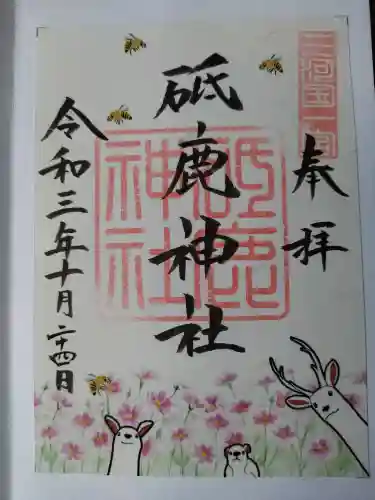 三河国一宮
奉拝
砥鹿神社
砥鹿神社
令和三年十月二十四日